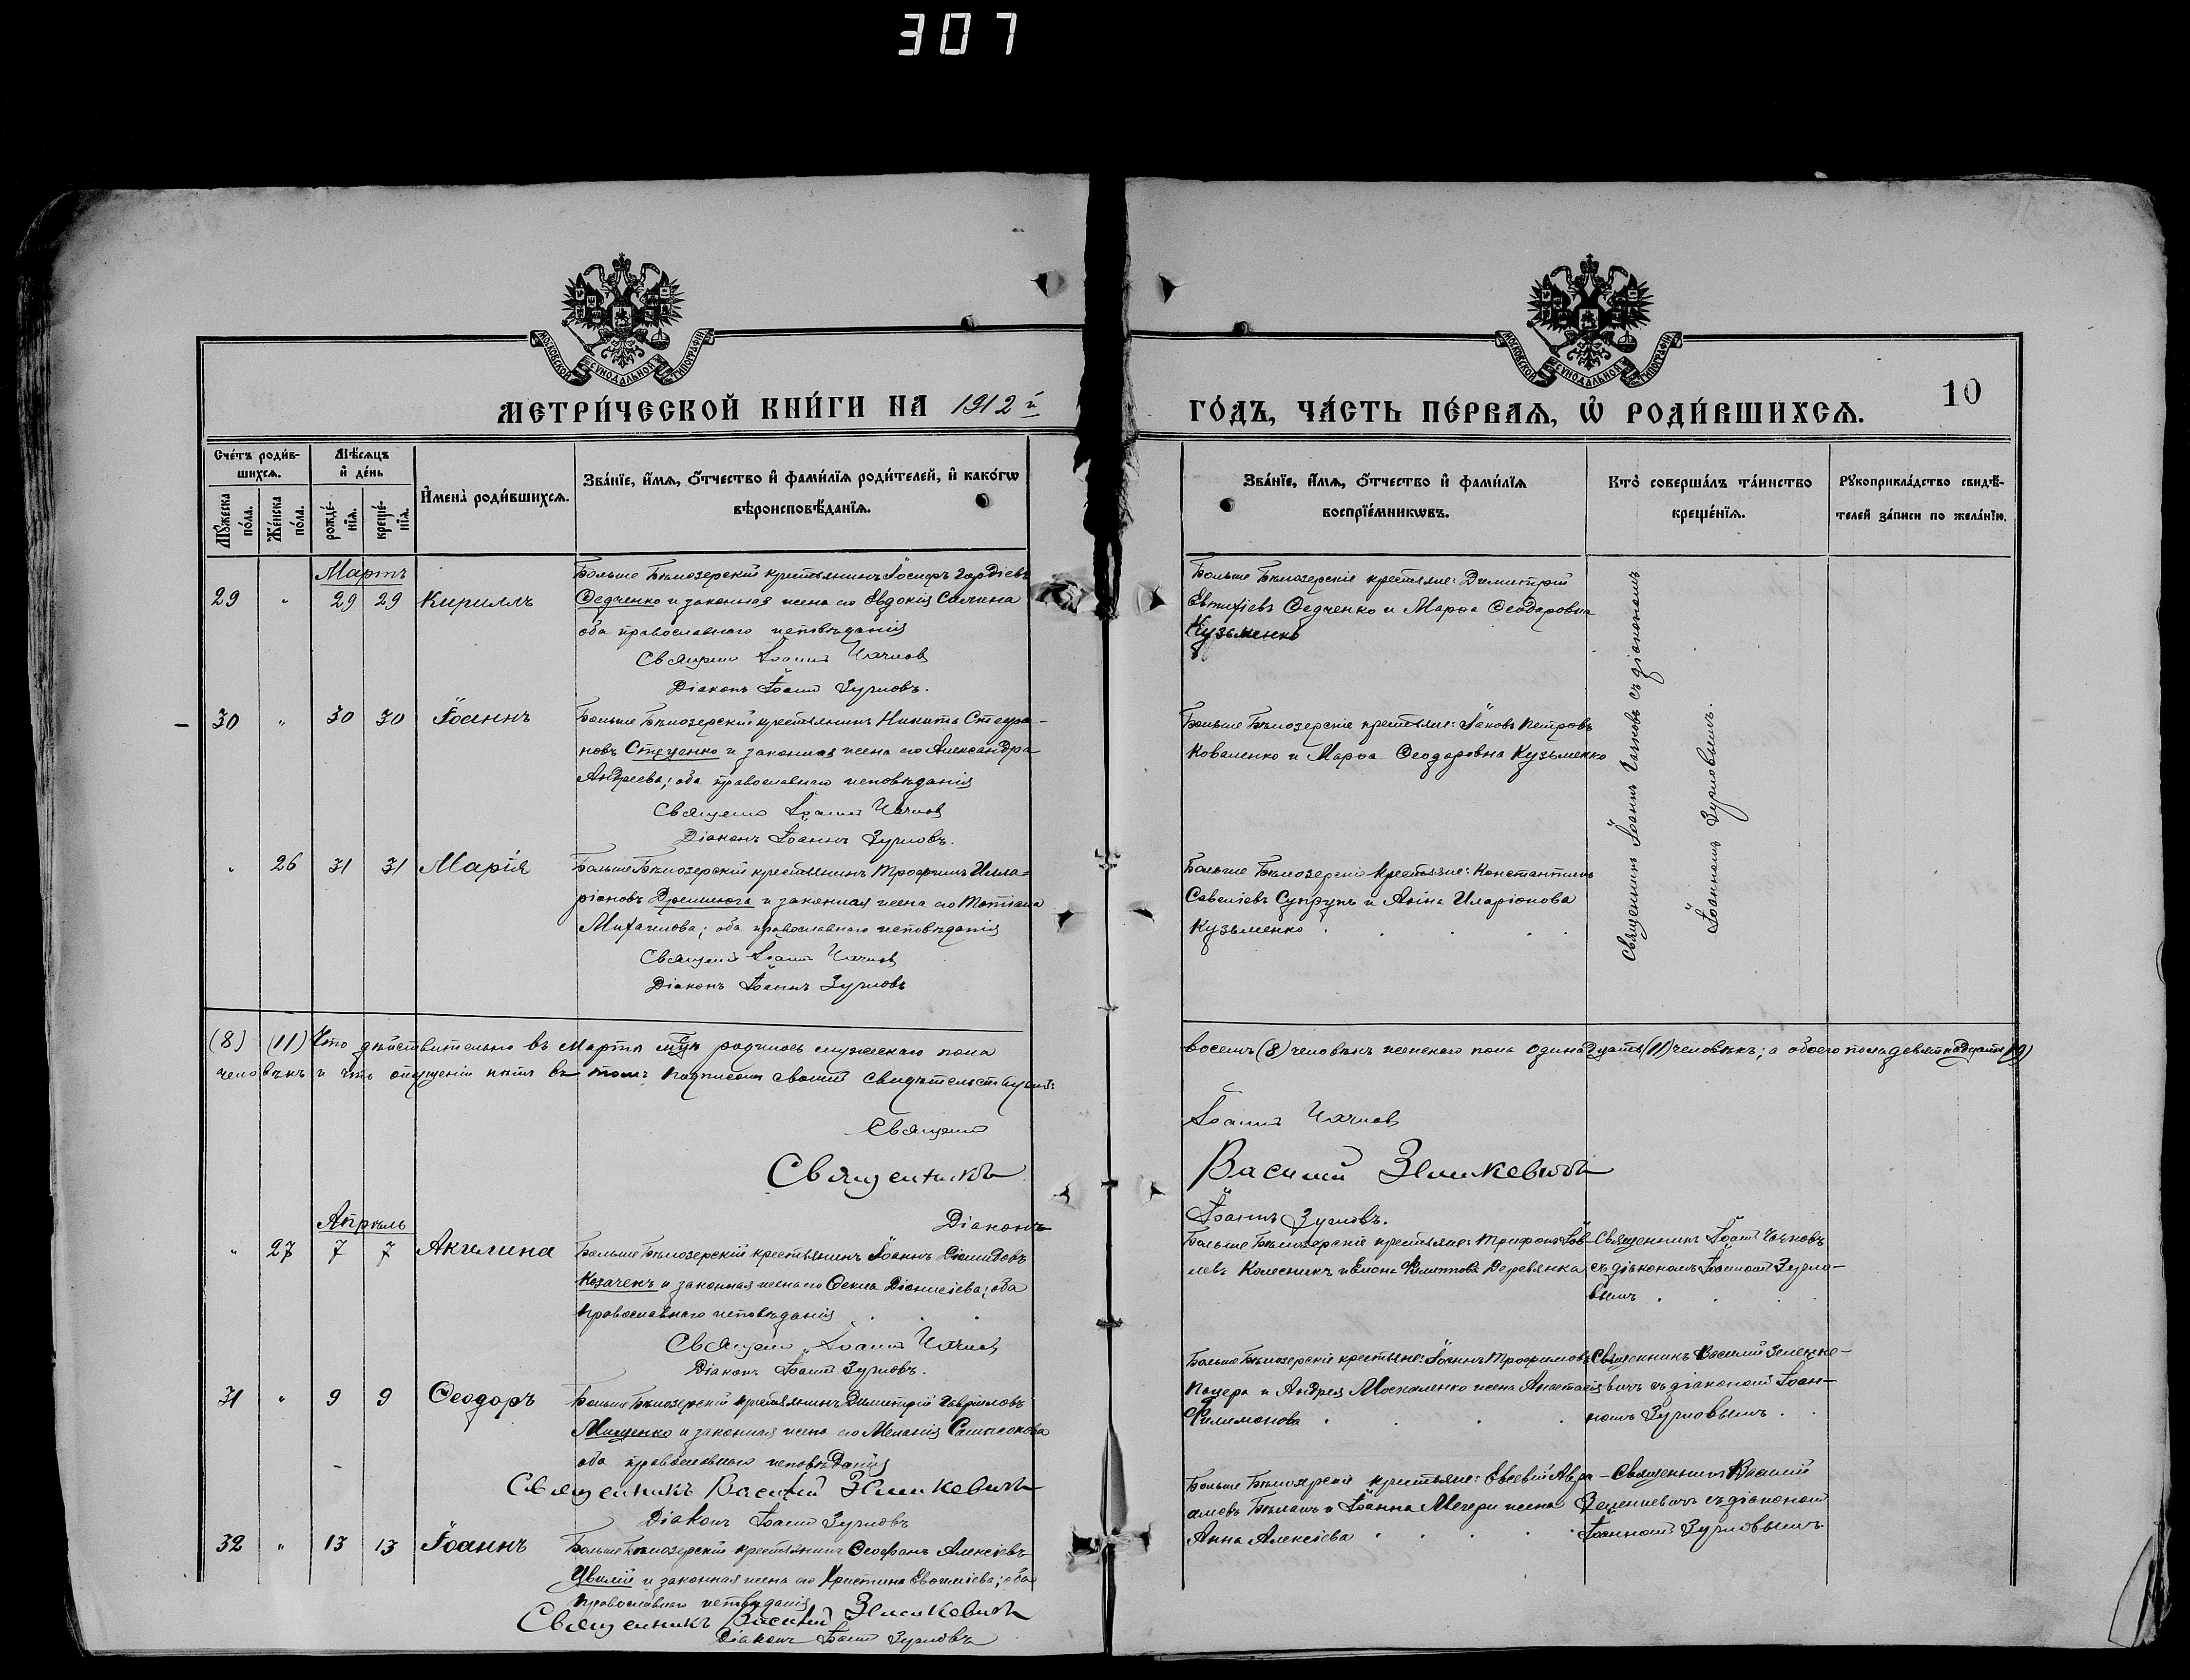 307
МОСКОВСКОЙ СѴНОДАЛЬНОЙ ТИПОГРАФІИ
МОСКОВСКОЙ СѴНОДАЛЬНОЙ ТИПОГРАФІИ
10
МЕТРИ́ЧЕСКОЙ КНИ́ГИ НА 1912 й
ГО́ДЪ, ЧА́СТЬ ПЕ́РВАЯ, Ѡ҆ РОДИ́ВШИХСѦ.
Сче́тъ роди́в-
шихся.
Мꙋжеска по́ла.
Же́нска по́ла.
Мѣ́сяцъ и҆ де́нь
рожде́-нїя.
креще́-нїя.
И҆мена̀ роди́вшихся.
Зва́нїе, и҆́мя, ѻ҆́тчество и҆ фами́лїя роди́телей, и҆ како́гѡ
вѣроисповѣ́данїя.
Зва́нїе, и҆́мя, ѻ҆́тчество и҆ фами́лїя
воспрїе́мникѡвъ.
Кто̀ соверша́лъ та́инство
креще́нїя.
Рꙋкоприкла́дство свидѣ́-
телей за́писи по жела́нїю.
Мартъ
29 " 29 29 Кириллъ
Больше Бѣлозерскій крестьянинъ Іосифъ Гордіевъ
Федченко и законная жена его Евдокія Савина
оба православнаго исповѣданія
Іоаннъ
Діаконъ Іоаннъ Зурновъ.
Больше Бѣлозерскіе крестьяне: Димитрій
Евтихіевъ Федченко и Марѳа Ѳеодоровна
Кузьменко
Священникъ Іоаннъ съ діакономъ
Іоанномъ Зурновымъ.
30 " 30 30 Іоаннъ
Больше Бѣлозерскій крестьянинъ Никита Стефа-
новъ Стеценко и законная жена его Александра
Андреева; оба православнаго исповѣданія
Іоаннъ
Діаконъ Іоаннъ Зурновъ.
Больше Бѣлозерскіе крестьяне: Іаковъ Петровъ
Коваленко и Марѳа Ѳеодоровна Кузьменко
" 26 31 31 Марія
Больше Бѣлозерскій крестьянинъ Трофимъ Илла-
ріоновъ и законная жена его Татіана
Михаилова; оба православнаго исповѣданія
Іоаннъ
Діаконъ Іоаннъ Зурновъ
Больше Бѣлозерскіе крестьяне: Константинъ
Савеліевъ Супрунъ и Анна Иларіонова
Кузьменко
(8) (11) Что дѣйствительно въ Мартѣ родилось мужескаго пола
восемь (8) человѣкъ женскаго пола одинадцать (11) человѣкъ; а обоего пола девятнадцать (19)
человѣкъ и что опущеній нѣтъ въ томъ подписомъ своимъ свидѣтельствуемъ:
Іоаннъ
Священникъ Василій Зенкевичъ
Діаконъ Іоаннъ Зурновъ.
Апрѣль
" 27 7 7 Акилина
Больше Бѣлозерскій крестьянинъ Іоаннъ Діомидовъ
Козаченъ и законная жена его Ѳекла Діонисіева; оба
православнаго исповѣданія
Іоаннъ
Діаконъ Іоаннъ Зурновъ.
Больше Бѣлозерскіе крестьяне: Трифонъ
Колесникъ и Елена Филиппова Деревянка
Священникъ Іоаннъ
съ діакономъ Іоанномъ Зурно-
вымъ
31 " 9 9 Ѳеодоръ
Больше Бѣлозерскій крестьянинъ Димитрій Гавріиловъ
Мищенко и законная жена его Меланія Сампсонова
оба православнаго исповѣданія
Священникъ Василій Зенкевичъ
Діаконъ Іоаннъ Зурновъ
Больше Бѣлозерскіе крестьяне: Іоаннъ Трофимовъ
и Андрея Москаленко жена Анастасія
Филимонова
Священникъ Василій
вичъ съ діакономъ Іоан-
номъ Зурновымъ
32 " 13 13 Іоаннъ
Больше Бѣлозерскій крестьянинъ Ѳеофанъ Алексіевъ
и законная жена его Христина Евѳиміева; оба
православнаго исповѣданія
Священникъ Василій Зенкевичъ
Діаконъ Іоаннъ Зурновъ
Больше Бѣлозерскіе крестьяне: Евсевій Авра-
амовъ и Іоанна Мегери жена
Анна Алексіева
Священникъ Василій
съ діакономъ
Іоанномъ Зурновымъ